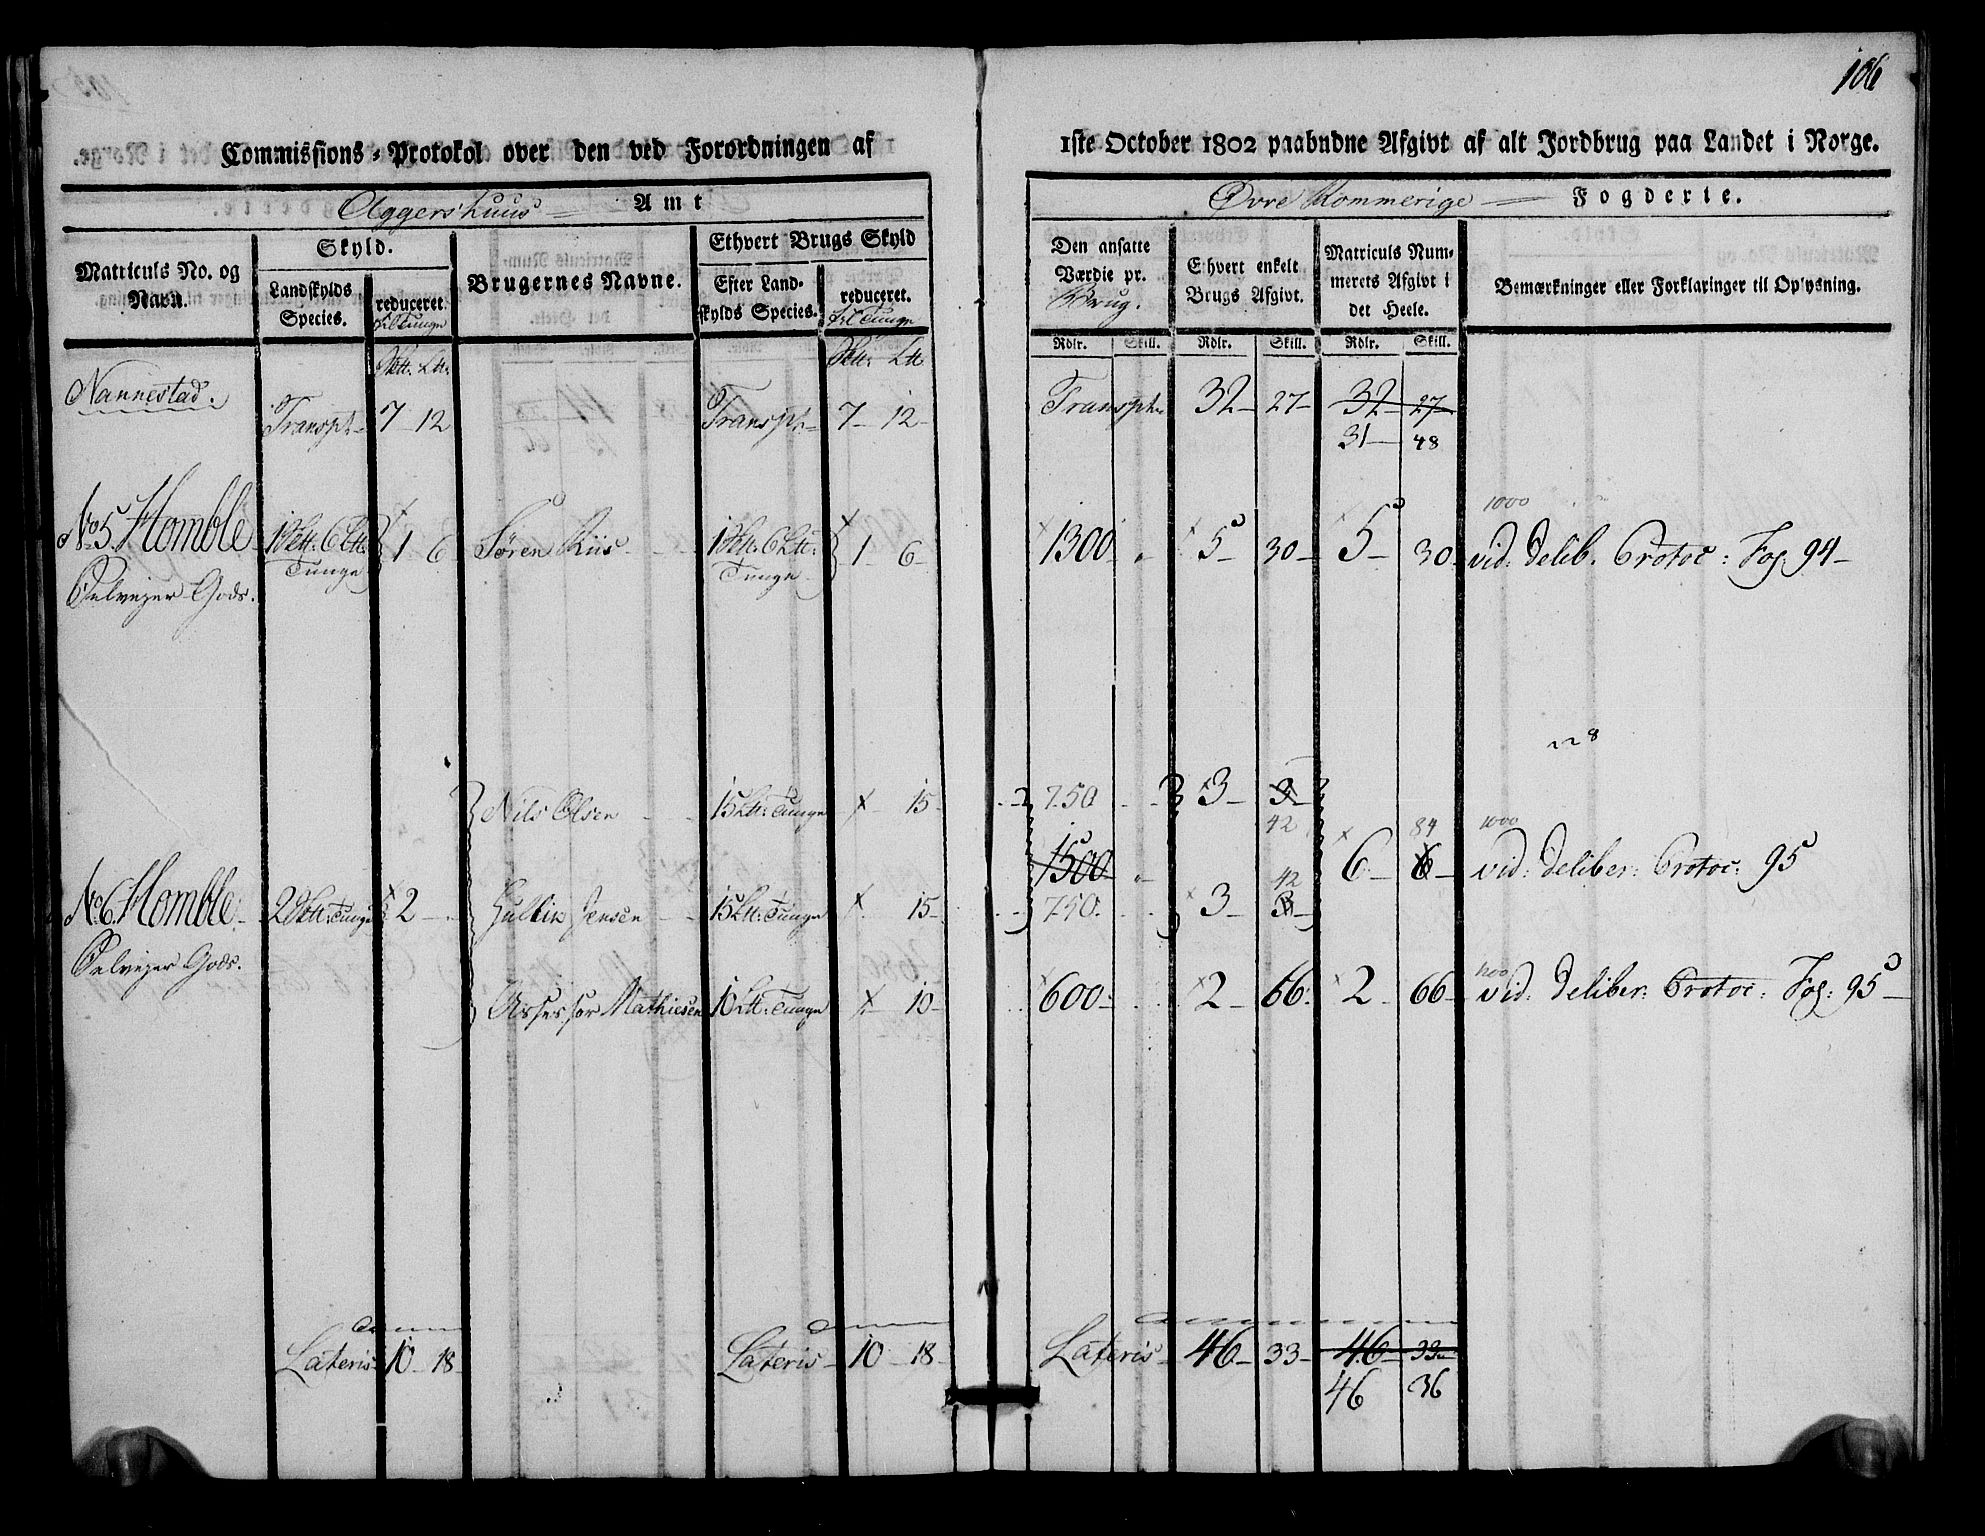 106
Commissions-Protokol over den ved Forordningen af 1ste October 1802 paabudne Afgivt af alt Jordbrug paa Landet i Norge.
Aggershuus Amt
Øvre Rommerige Fogderie.
Matriculs No. og Navn.
Skyld.
Landskylds Species.
reduceret
til Tunge
Brugernes Navne.
Ethvert Brugs Skyld
Efter Landskylds Species.
reduceret.
til Tunge
Den ansatte Værdie pr. Brug.
Ethvert enkelt Brugs Afgivt.
Matriculs Nummerets Afgivt i det Heele.
Bemærkninger eller Forklaringer til Oplysning.
Rdlr. Skill. Rdlr. Skill. Rdlr. Skill.
Nannestad.
Transpt. 7 12 Transpt. 7 12 Transpt. 32 27 32 27
31 48
1000
No 5. Homble 1 6 Søren Riis 1 6 1300 5 30 5 30 vid: Delib. Protoc: Fog. 94
Tunge Tunge
Selvejer Gods.
Nils Olsen 15 Ltt: Tunge 15 750 3 3
42 84 1000
1500 6 6 vid: Deliber: Protoc: 95
42
No 6. Homble 2 2 Jensen 15 Ltt: Tunge 15 750 3 3
Selvejer Gods.
Assessor Mathiesen 10 Ltt: Tunge 10 600 2 66 2 66 vid: Deliber: Protoc: Fog: 95
Lateris 10 18 Lateris 10 18 Lateris 46 33 46 33
46 36